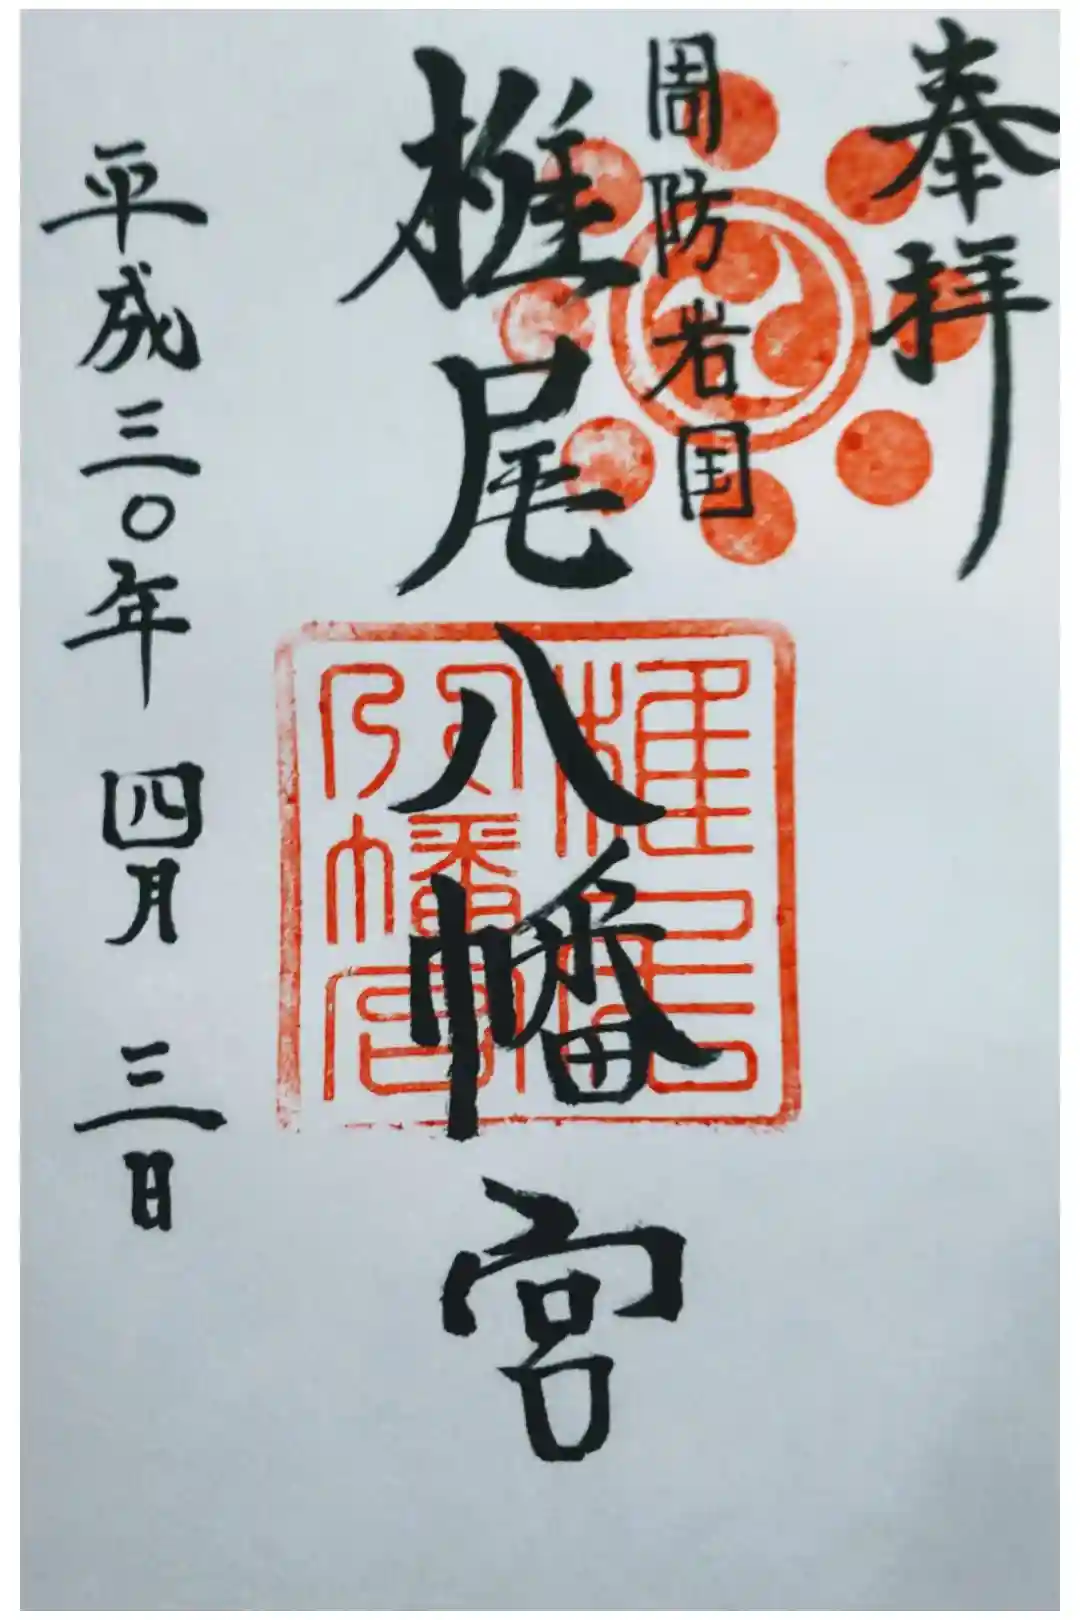 奉拝
周防岩国
椎尾八幡宮
平成三〇年 四月 三日